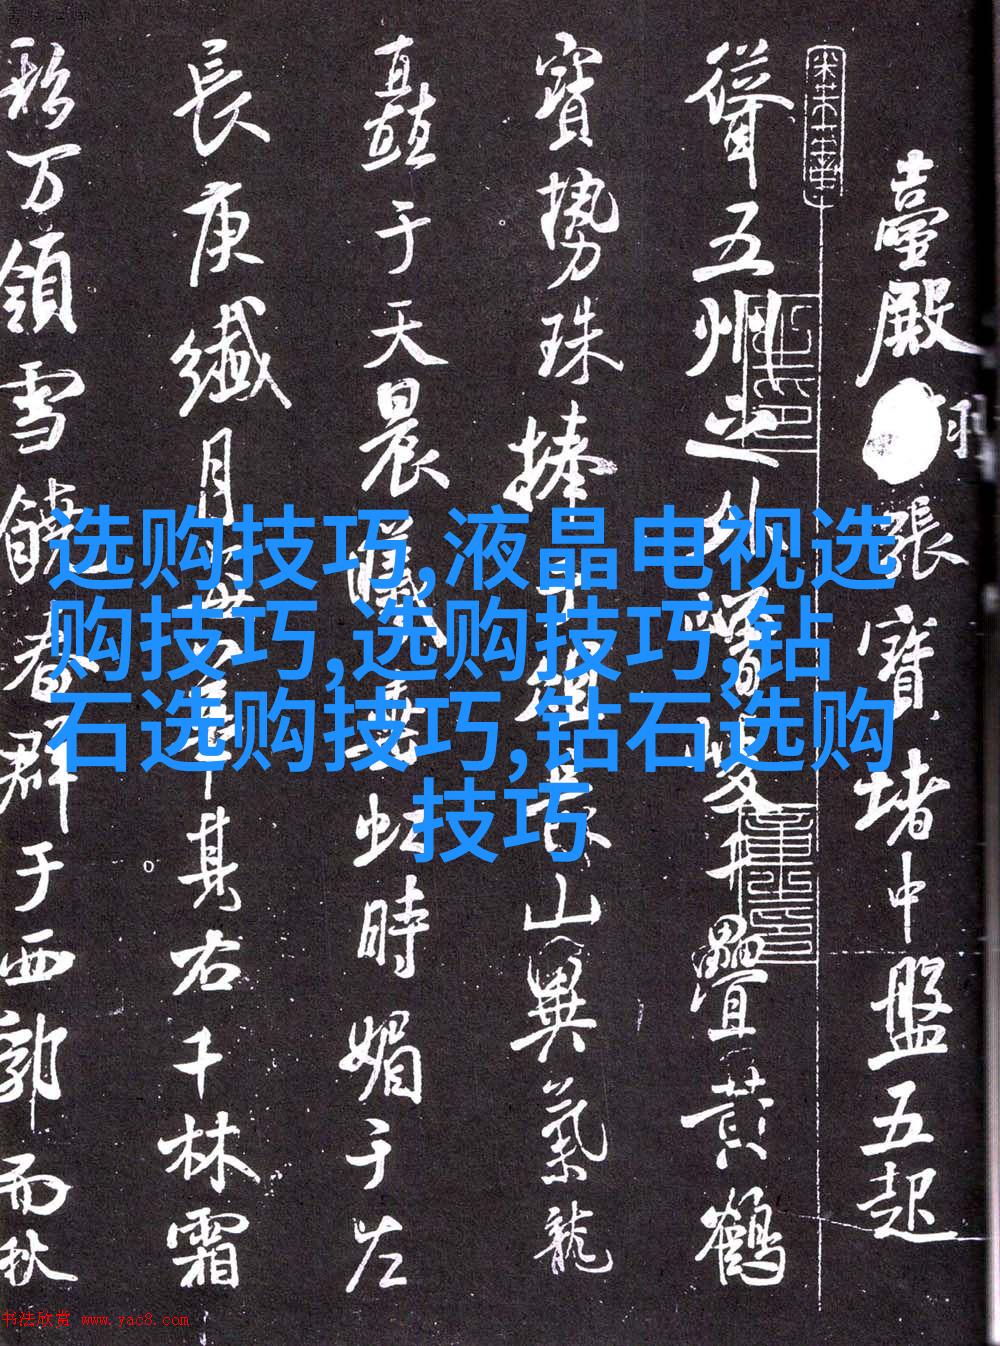 臺殿張寶堵中盤五起
聳五州之外雙疊黃鶴
寶勢珠捧山異氣龍
矗于天晨曦虹時媚于左
長庚纖月其右千林霜
万領雪饒春群于西郭而秋
选购技巧,液晶电视选
购技巧,选购技巧,钻
石选购技巧,钻石选购
技巧
书法欣赏 www.yac8.com